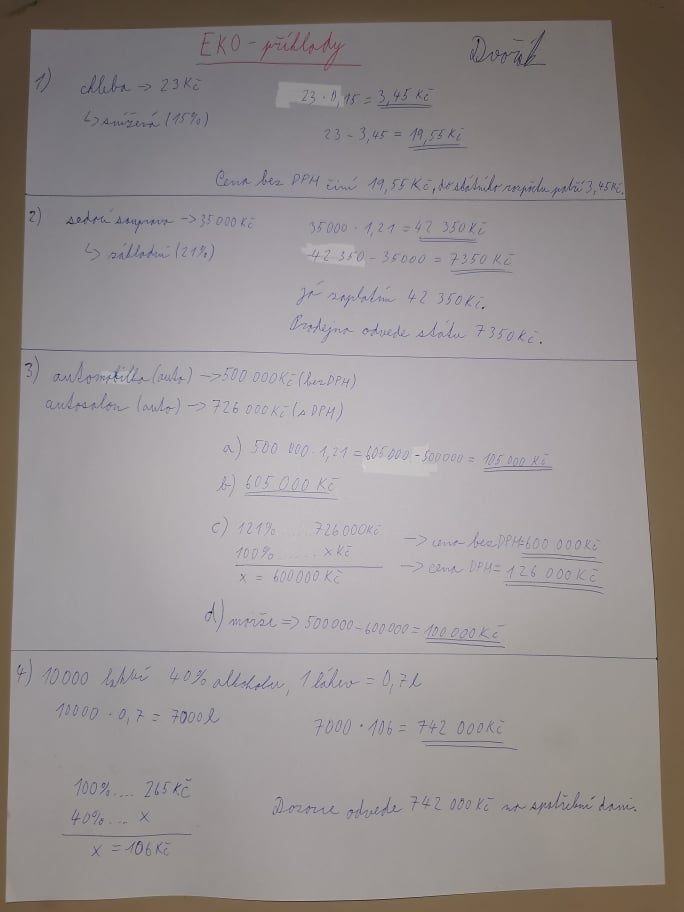 EKO - příklady
Dvořák
1) chleba -> 23Kč
↳ snížená (15%)
23 · 0,15 = 3,45 Kč
23 - 3,45 = 19,55 Kč
Cena bez DPH činí 19,55 Kč, do státního rozpočtu patří 3,45Kč.
2) sedací souprava -> 35000Kč
↳ základní (21%)
35000 · 1,21 = 42 350Kč
42 350 - 35000 = 7350 Kč
Já zaplatím 42 350Kč.
Prodejna odvede státu 7350Kč.
3) automobilka (auto) -> 500 000Kč (bez DPH)
autosalon (auto) -> 726 000Kč (s DPH)
a) 500 000 · 1,21 = 605000 - 500000 = 105 000 Kč
b) 605 000 Kč
c) 121% .... 726000Kč
100% ...... x Kč
x = 600000 Kč
-> cena bez DPH = 600 000Kč
-> cena DPH = 126 000 Kč
d) marže => 500000 - 600000 = 100 000 Kč
4) 10000 lahví 40% alkoholu, 1 láhev = 0,7 l
10000 · 0,7 = 7000 l
7000 · 106 = 742 000Kč
100% .... 265 Kč
40% ... x
x = 106 Kč
odvede 742 000 Kč na spotřební dani.